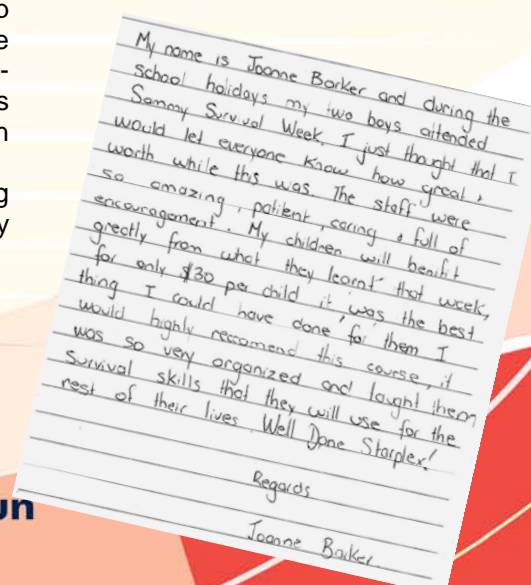 o
e
-
s
n
g
y
My name is Joanne Barker and during the
school holidays my two boys attended
Sammy Survival Week. I just thought that I
would let everyone know how great &
worth while this was. The staff were
so amazing, patient, caring & full of
encouragement. My children will benifit
greatly from what they learnt that week,
for only $30 per child it was the best
thing I could have done for them I
would highly reccomend this course, it
was so very organized and taught them
survival skills that they will use for the
rest of their lives. Well Done Starplex!
Regards
Joanne Barker.
un